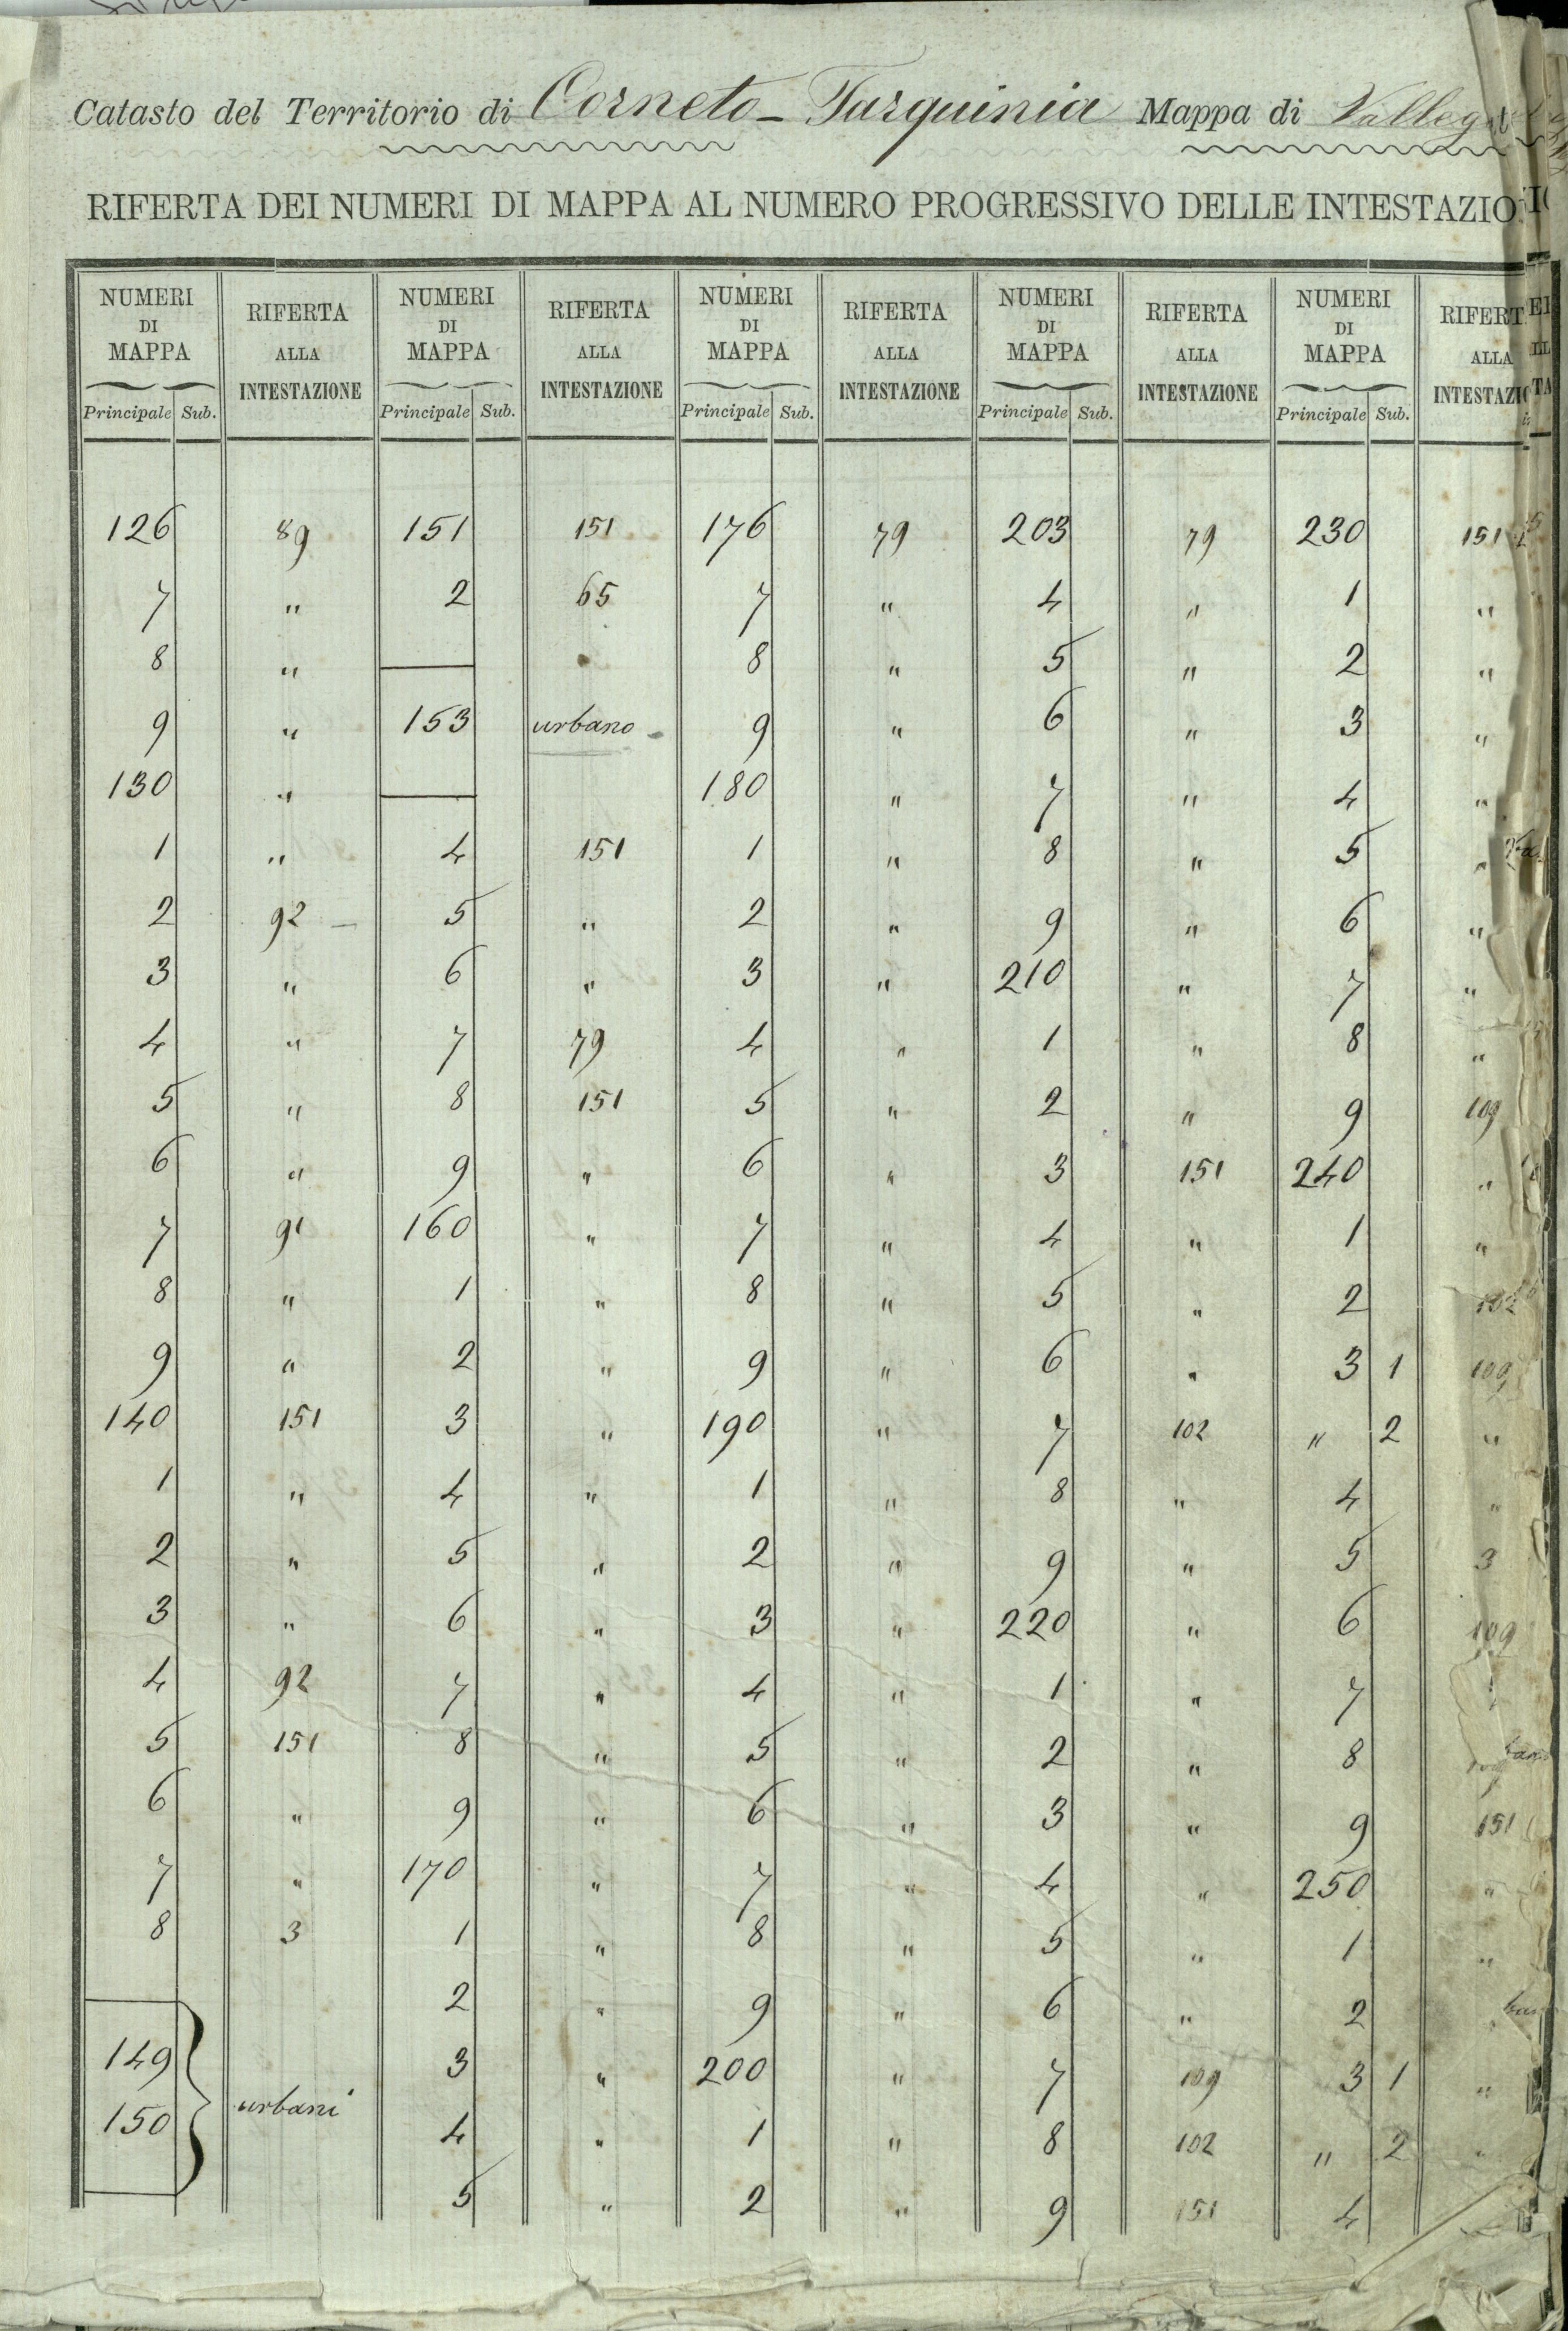 Catasto del Territorio di Corneto - Tarquinia Mappa di
RIFERTA DEI NUMERI DI MAPPA AL NUMERO PROGRESSIVO DELLE INTESTAZIO
NUMERI DI MAPPA RIFERTA ALLA INTESTAZIONE NUMERI DI MAPPA RIFERTA ALLA INTESTAZIONE NUMERI DI MAPPA RIFERTA ALLA INTESTAZIONE NUMERI DI MAPPA RIFERTA ALLA INTESTAZIONE NUMERI DI MAPPA RIFERT ALLA INTESTAZI
Principale Sub. Principale Sub. Principale Sub. Principale Sub. Principale Sub.
126 89 151 151 176 79 203 79 230 151
7 " 2 65 7 " 4 " 1 "
8 " 8 " 5 " 2 "
9 " 153 urbano 9 " 6 " 3 "
130 " 180 " 7 " 4 "
1 " 4 151 1 " 8 " 5 "
2 92 — 5 " 2 " 9 " 6 "
3 " 6 " 3 " 210 " 7 "
4 " 7 79 4 " 1 " 8 "
5 " 8 151 5 " 2 " 9 109
6 " 9 " 6 " 3 151 240 "
7 91 160 " 7 " 4 " 1 "
8 " 1 " 8 " 5 " 2 102
9 " 2 " 9 " 6 " 3 1 109
140 151 3 " 190 " 7 102 " 2 "
1 " 4 " 1 " 8 " 4 "
2 " 5 " 2 " 9 " 5 3
3 " 6 " 3 " 220 " 6 109
4 92 7 " 4 " 1 " 7
5 151 8 " 5 " 2 " 8
6 " 9 " 6 " 3 " 9 151
7 " 170 " 7 " 4 " 250 "
8 3 1 " 8 " 5 " 1 "
2 " 9 " 6 " 2
149 3 " 200 " 7 109 3 1 "
150 urbani 4 " 1 " 8 102 " 2 "
5 " 2 " 9 151 4